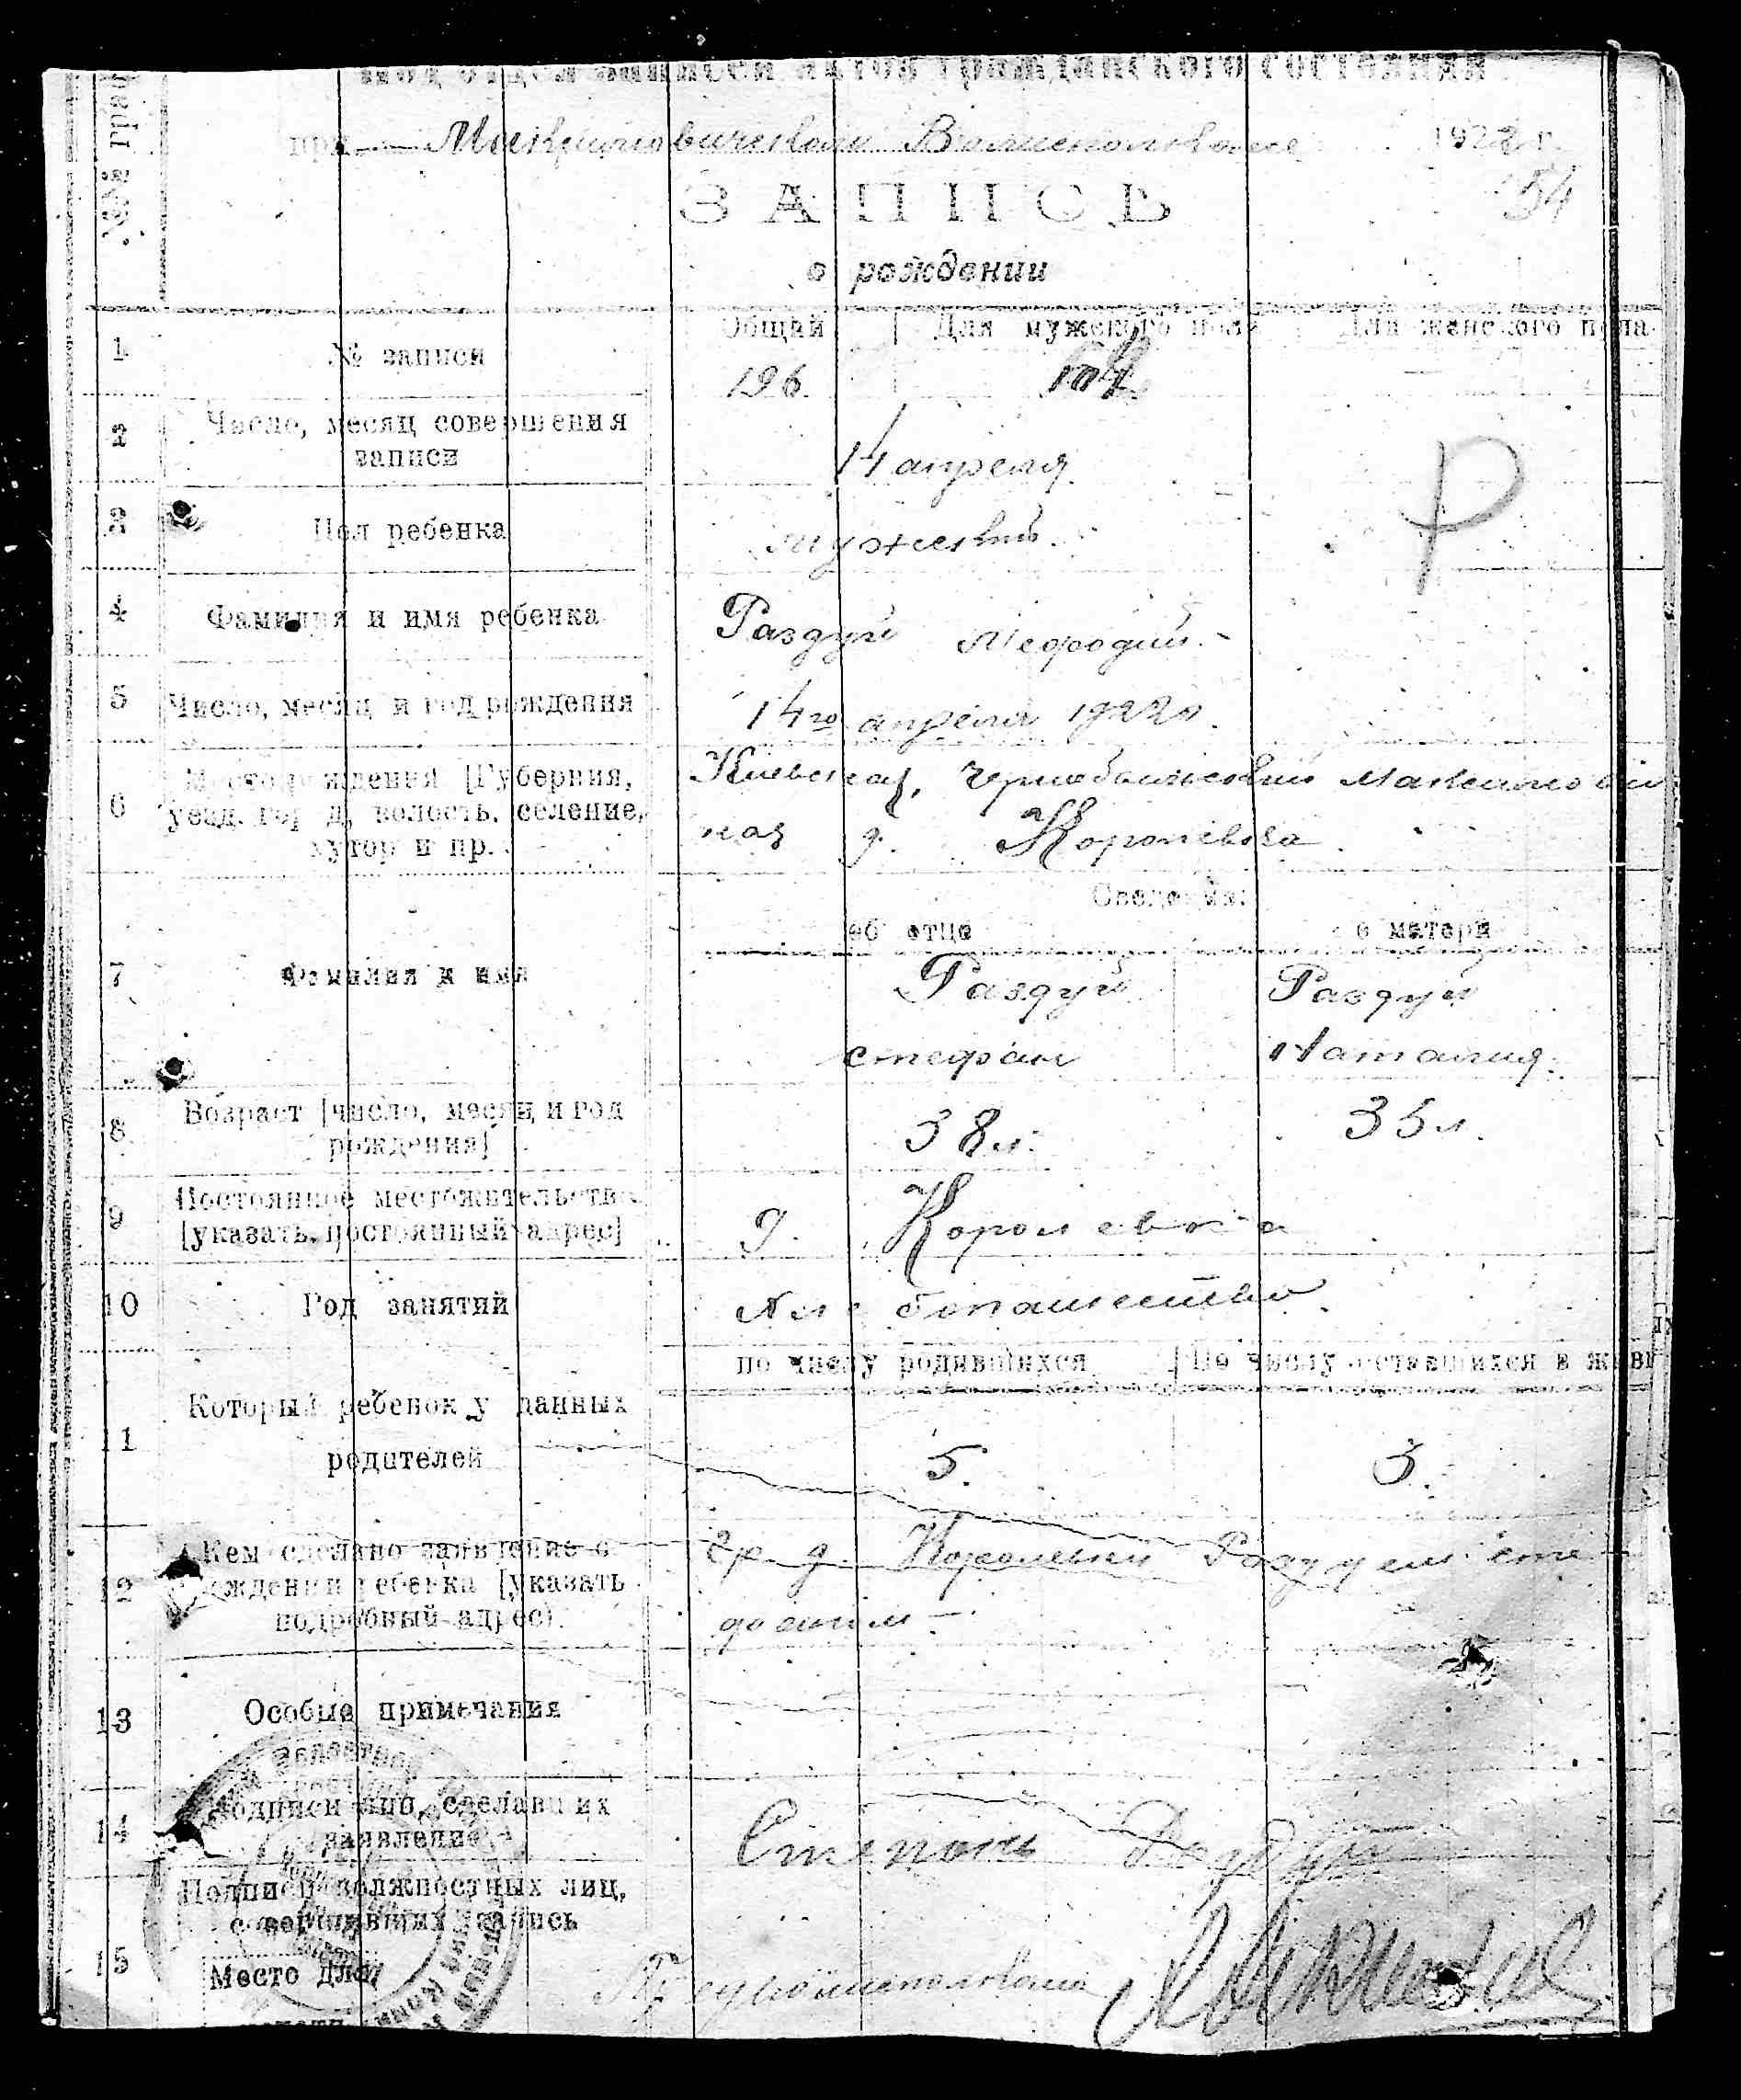 №№ граф
под отдел записей актов гражданского состояния
при Максимовическом Волисполкоме 1922 г.
54
ЗАПИСЬ
о рождении
Общий Для мужского пола Для женского пола
1 № записи 196
2 Число, месяц совершения
записи 14 апреля
3 Пол ребенка мужской
4 Фамилия и имя ребенка Раздуй Мефодий
5 Число, месяц и год рождения 14го апреля 1922 г.
Место рождения [Губерния, Киевская, Чернобыльский Максимови
6 уезд, город, волость, селение, ская д. Королевка
хутор и пр.
Сведения:
об отце о матери
7 Фамилия и имя Раздуй Раздуй
Стефан Наталия
8 Возраст [число, месяц и год
рождения] 38 л. 35 л.
9 Постоянное местожительство
[указать постоянный адрес] д. Королевка
10 Род занятий
по числу родившихся По числу оставшихся в жив
11 Который ребенок у данных
родителей 5. 3.
12 Кем сделано заявление о Гр. д. Королевки Раздуем Сте
рождении ребенка [указать
подробный адрес)
13 Особые примечания
14 Подписи лиц, сделавших
заявление Степань Раздуй
Подписи должностных лиц,
совершивших запись
15 Место для